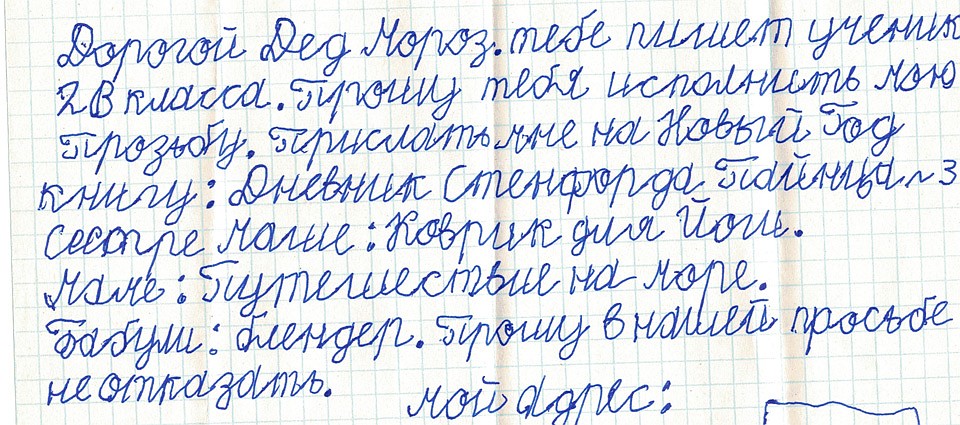 Дорогой Дед Мороз. тебе пишет ученик
2 В класса. Прошу тебя исполнить мою
Прозьбу. Прислать мне на Новый Год
книгу: Дневник Стенфорда Пайнца ~ 3
Сестре Маше: Коврик для Йоги.
Маме: Путешествие на море.
Бабуши: блендер. Прошу в нашей просьбе
не отказать.
мой адрес: